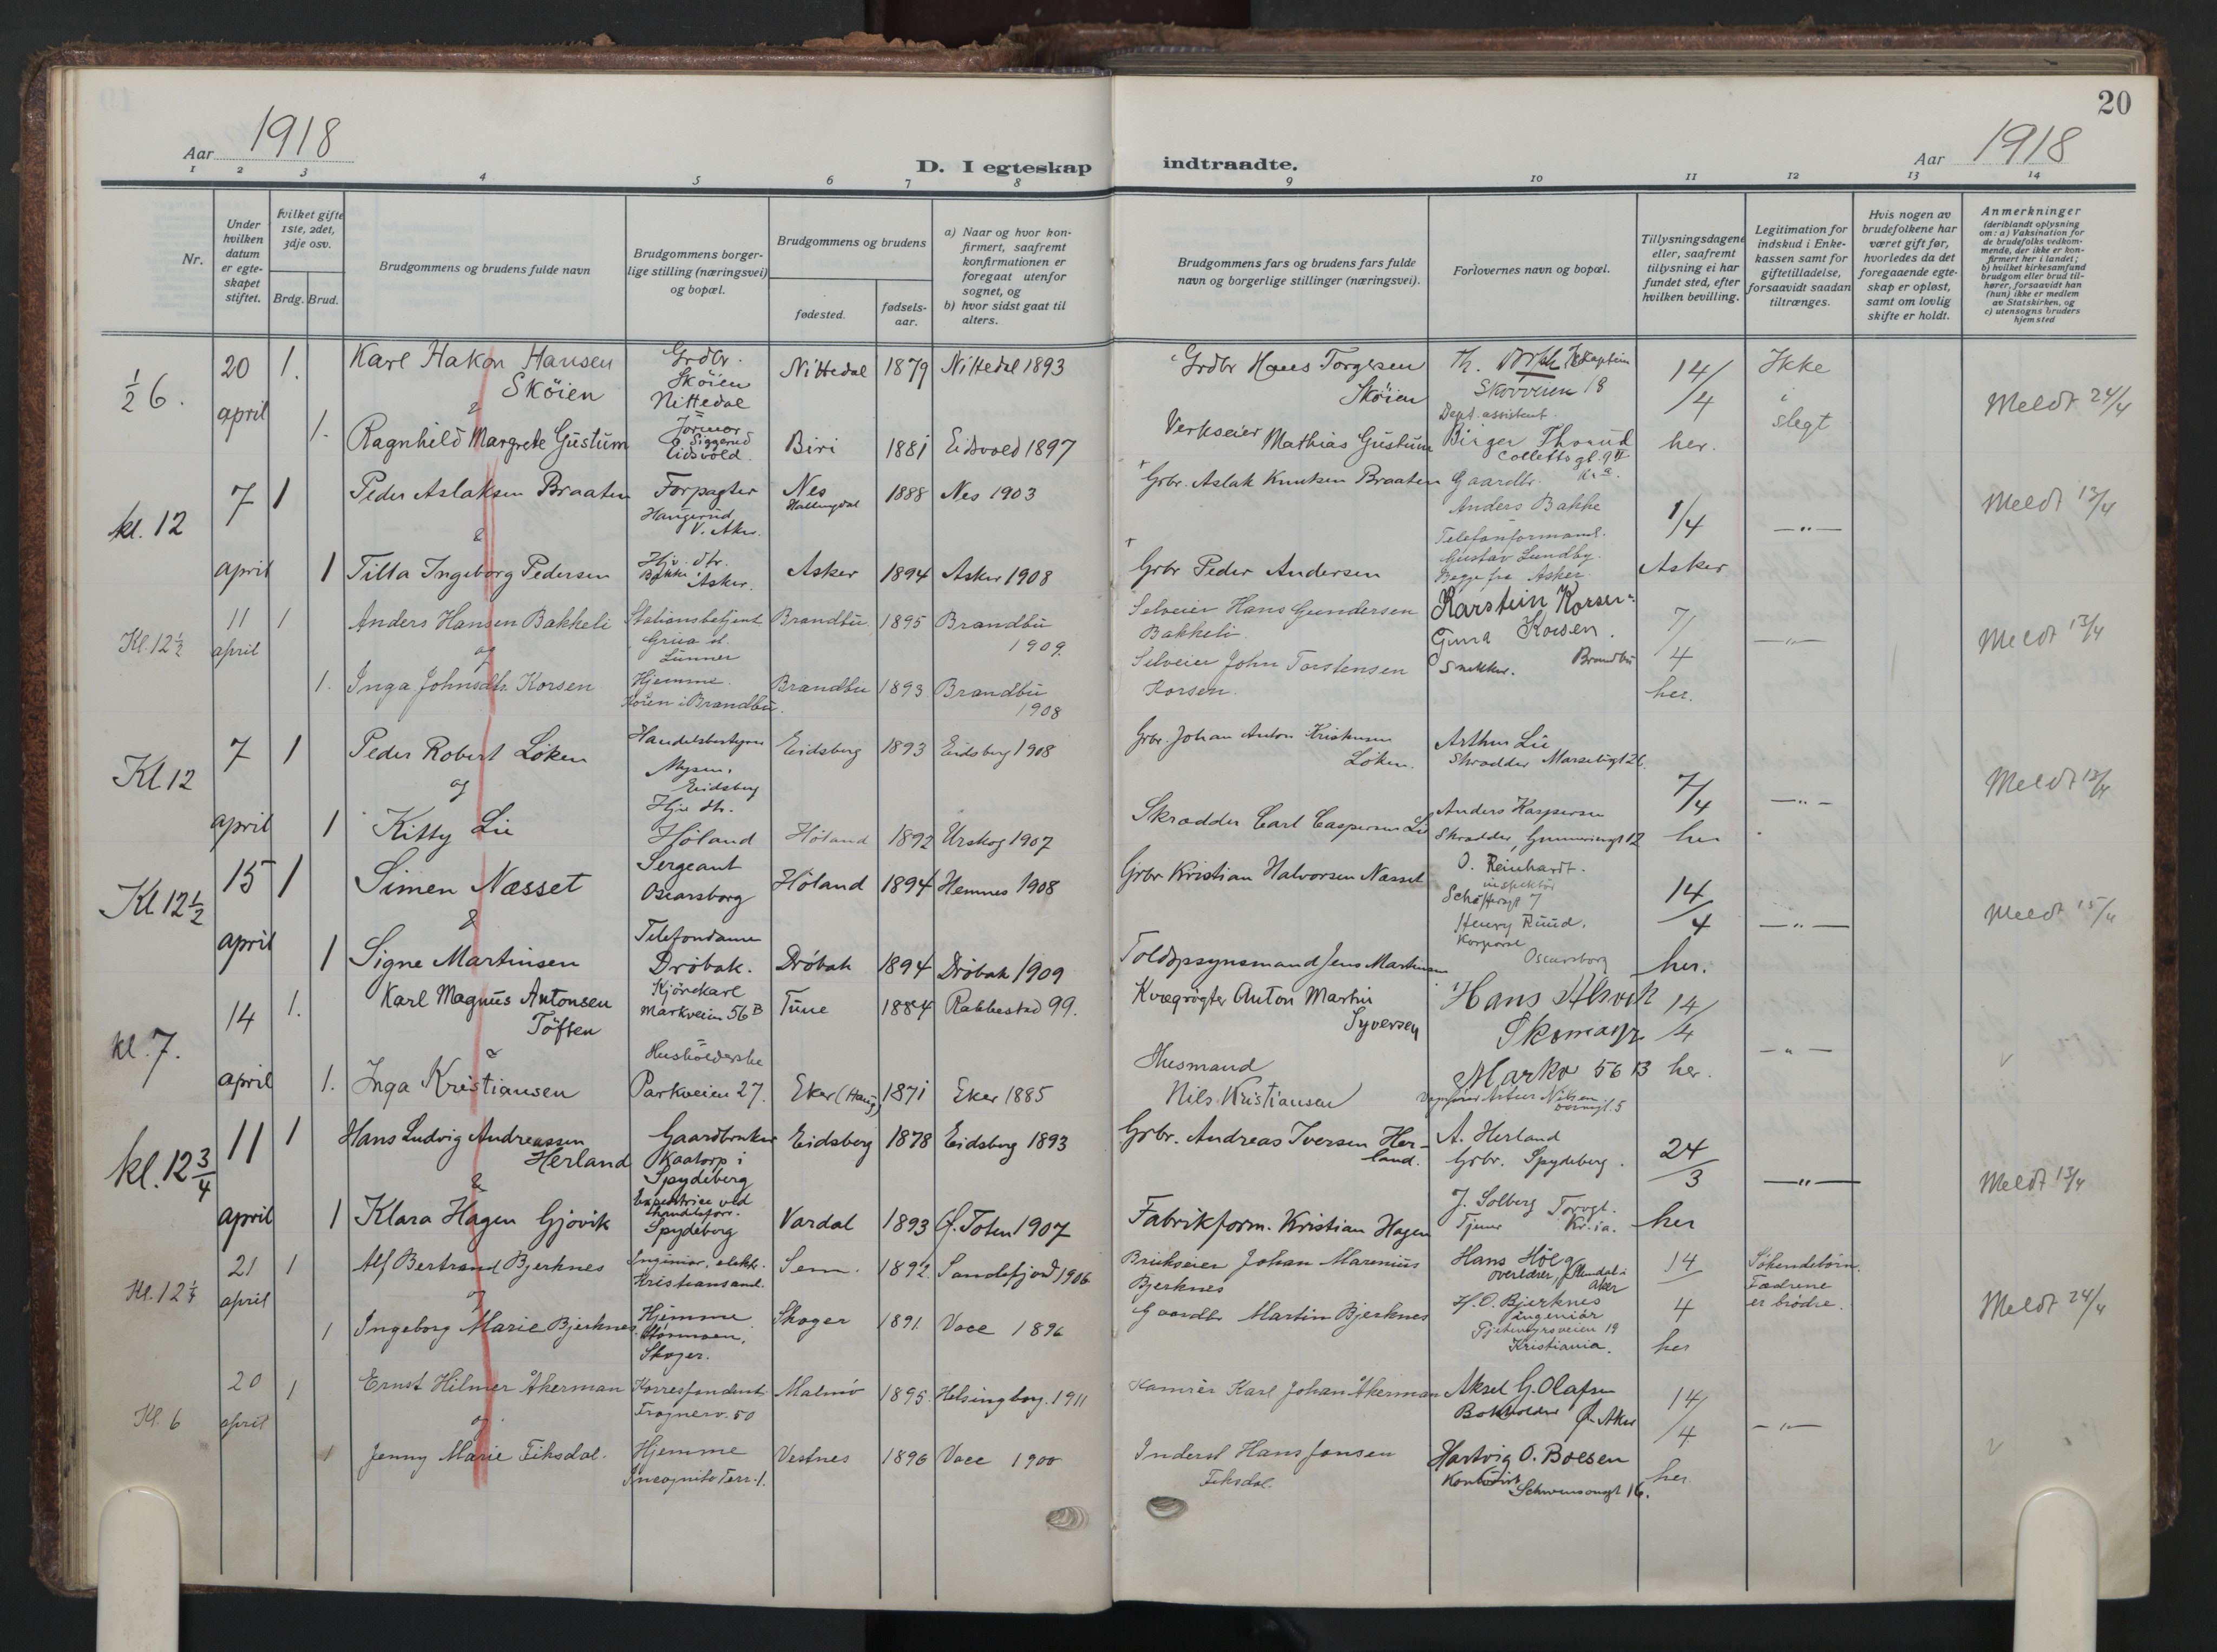 20
Aar 1918
D. I egteskap indtraadte.
Aar 1918
1 2 3 4 5 6 7 8 9 10 11 12 13 14
Nr.
Under hvilken datum er egteskapet stiftet.
Hvilket gifte 1ste, 2det, 3dje osv.
Brdg. Brud.
Brudgommens og brudens fulde navn
Brudgommens borgerlige stilling (næringsvei) og bopæl.
Brudgommens og brudens
fødested.
fødselsaar.
a) Naar og hvor konfirmert, saafremt konfirmationen er foregaat utenfor sognet, og
b) hvor sidst gaat til alters.
Brudgommens fars og brudens fars fulde navn og borgerlige stillinger (næringsvei).
Forlovernes navn og bopæl.
Tillysningsdagene eller, saafremt tillysning ei har fundet sted, efter hvilken bevilling.
Legitimation for indskud i Enkekassen samt for giftetilladelse, forsaavidt saadan tiltrænges.
Hvis nogen av brudefolkene har været gift før, hvorledes da det foregaaende egteskap er opløst, samt om lovlig skifte er holdt.
Anmerkninger (deriblandt oplysning om: a) Vaksination for de brudefolks vedkommende, der ikke er konfirmert her i landet; b) hvilket kirkesamfund brudgom eller brud tilhører, forsaavidt han (hun) ikke er medlem av Statskirken, og c) utensogns bruders hjemsted
½ 6. 20 april 1. Karl Hakon Hansen Sköien Grdbr. Sköien Nittedal Nittedal 1879 Nittedal 1893 Grdbr Hans Torgersen Sköien Th. Skovveien 18 14/4 her. Ikke slegt Meldt 24/4
&
1. Ragnhild Margrete Gustum Jormor Siggerud Eidsvold. Biri 1881 Eidsvold 1897 Verkseier Mathias Gustum Dept. assistent. Birger Thorud Collettsgt. 9 II Kr.a.
kl. 12 7 april 1 Peder Aslaksen Braaten Forpagter Haugerud V. Aker. Nes Hallingdal 1888 Nes 1903 Grbr. Aslak Knutsen Braaten Gaardbr. Anders Bakke 1/4 Asker —"— Meldt 13/4
&
1 Tilla Ingeborg Pedersen Hjv. dtr. Asker. Asker 1894 Asker 1908 Grbr Peder Andersen Telefonformand. Gustav Lundby. Begge fra Asker
Kl. 12½ 11 april 1 Anders Hansen Bakkeli Stationsbetjent Grua st. Lunner Brandbu 1895 Brandbu 1909. Selveier Hans Gundersen Bakkeli. Karstein Korsen 7/4 her. —"— Meldt 13/4
og
1. Inga Johnsdtr. Korsen Hjemme. Korsen i Brandbu. Brandbu 1893 Brandbu 1908 Selveier John Torstensen Korsen. Korsen. Snekker. Brandbu
Kl 12 7 april 1 Peder Robert Löken Handelsbestyrer Mysen, Eidsberg Eidsberg 1893 Eidsberg 1908 Grbr. Johan Anton Kristensen Löken. Arthur Lie Skrædder 7/4 her —"— Meldt 13/4
og
1 Kitty Lie Hjv. dtr. Höland Höland 1892 Urskog 1907 Skrædder Carl Caspersen Lie Anders Kaspersen Skrædder, 12
Kl 12½ 15 april 1 Simen Næsset Sergeant Oscarsborg Höland 1894 Hemnes 1908 Grbr. Kristian Halvorsen Næsset O. Reinhardt. inspektör 7 14/4 her. —"— Meldt 15/4
&
1 Signe Martinsen Telefondame Dröbak. Dröbak 1894 Dröbak 1909 Toldopsynsmand Jens Martinsen Henry Ruud. Oscarsborg
kl. 7. 14 april 1. Karl Magnus Antonsen Töften Kjörekarl Markveien 56 B Tune 1884 Rakkestad 99. Kvægrögter Anton Martin Syversen Hans Skomagr Markv 56 B 14/4 her. —"—
&
1. Inga Kristiansen Husholderske Parkveien 27. Eker (Haug) 1871 Eker 1885 Husmand Nils Kristiansen Artur Nilsen
kl. 12¾ 11 april 1 Hans Ludvig Andreassen Herland Gaardbruker Kaatorp i Spydeberg Eidsberg 1878 Eidsberg 1893 Grbr. Andreas Iversen Herland. A. Herland Grbr. Spydeberg. 24/3 her —"— Meldt 13/4
&
1 Klara Hagen Gjövik Expeditrice ved Handelsforr. Spydeberg Vardal 1893 Ø. Toten 1907 Fabrikform. Kristian Hagen J. Solberg Torvgt. Kr.ia.
Kl. 12¼ 21 april 1 Alf Bertrand Bjerknes Ingeniør, elektr. Kristiansand. Sem. 1892. Sandefjord 1906 Brukseier Johan Marenius Bjerknes Hans Höeg overlærer, Aker 14/4 her Sökendebörn. Fædrene er brödre. Meldt 24/4
og
1 Ingeborg Marie Bjerknes Hjemme. Skoger. Skoger 1891 Vace 1896 Gaardbr Martin Bjerknes H. O. Bjerknes ingeniör 19 Kristiania.
Kl. 6 20 april 1 Ernst Hilmer Åkerman Korrespondent Frognerv. 50 Malmö 1895. Helsingborg. 1911 Kamrer Karl Johan Åkerman Aksel G. Olafsen Bokholder Ø. Aker 14/4 her. —"—
og
1 Jenny Marie Fiksdal. Hjemme Incognito Terr. 1. Vestnes 1896 Vace 1900 Inderst Hans Jonsen Fiksdal. Hartvig O. Boesen Kontorist 16.